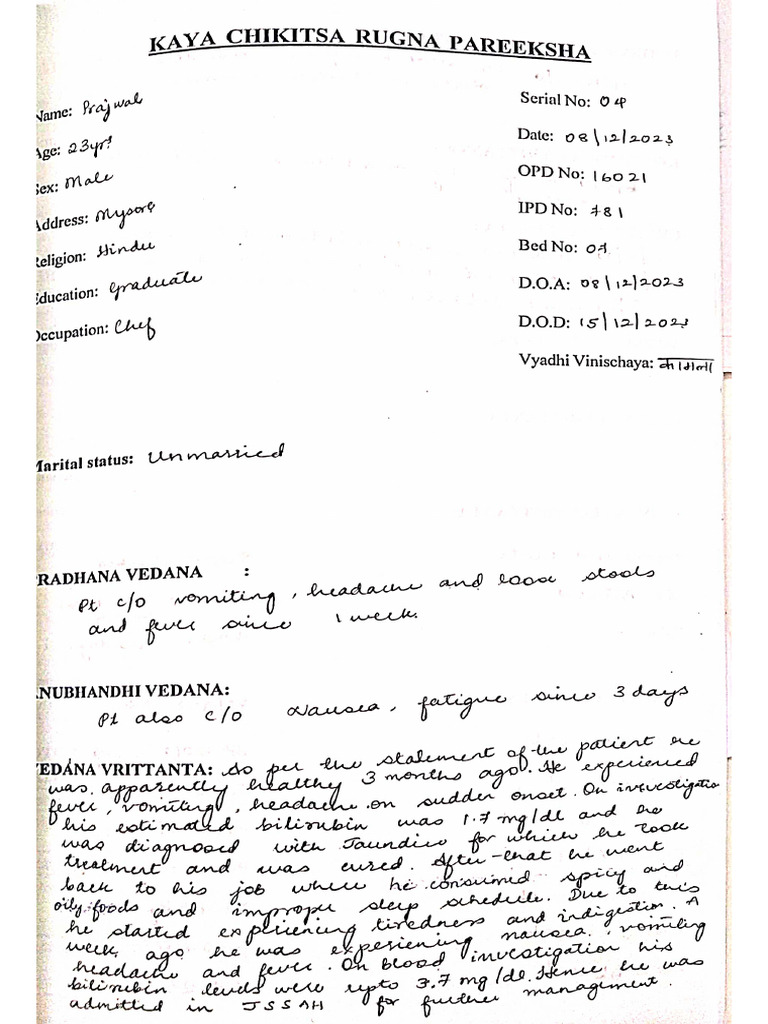 KAYA CHIKITSA RUGNA PAREEKSHA
Name: Prajwal
Age: 23yrs
Sex: Male
Address: Mysore
Religion: Hindu
Education: Graduate
Occupation: Chef
Serial No: 04
Date: 08/12/2023
OPD No: 16021
IPD No: 781
Bed No: 07
D.O.A: 08/12/2023
D.O.D: 15/12/2023
Vyadhi Vinischaya: कामला
Marital status: Unmarried
PRADHANA VEDANA :
Pt c/o vomiting, headache and loose stools
and fever since 1 week.
ANUBHANDHI VEDANA:
Pt also c/o Nausea, fatigue since 3 days
VEDANA VRITTANTA: As per the statement of the patient he
was apparently healthy 3 months ago. He experienced
fever, vomiting, headache on sudden onset. On investigation
his estimated bilirubin was 1.7 mg/dl and he
was diagnosed with Jaundice for which he took
treatment and was cured. After that he went
back to his job where he consumed spicy and
oily foods and improper sleep schedule. Due to this
he started experiencing tiredness and indigestion. A
week ago he was experiening nausea, vomiting
headache and fever. On blood investigation his
bilirubin levels were upto 3.7 mg/dl. Hence he was
admitted in JSSAH for further management.